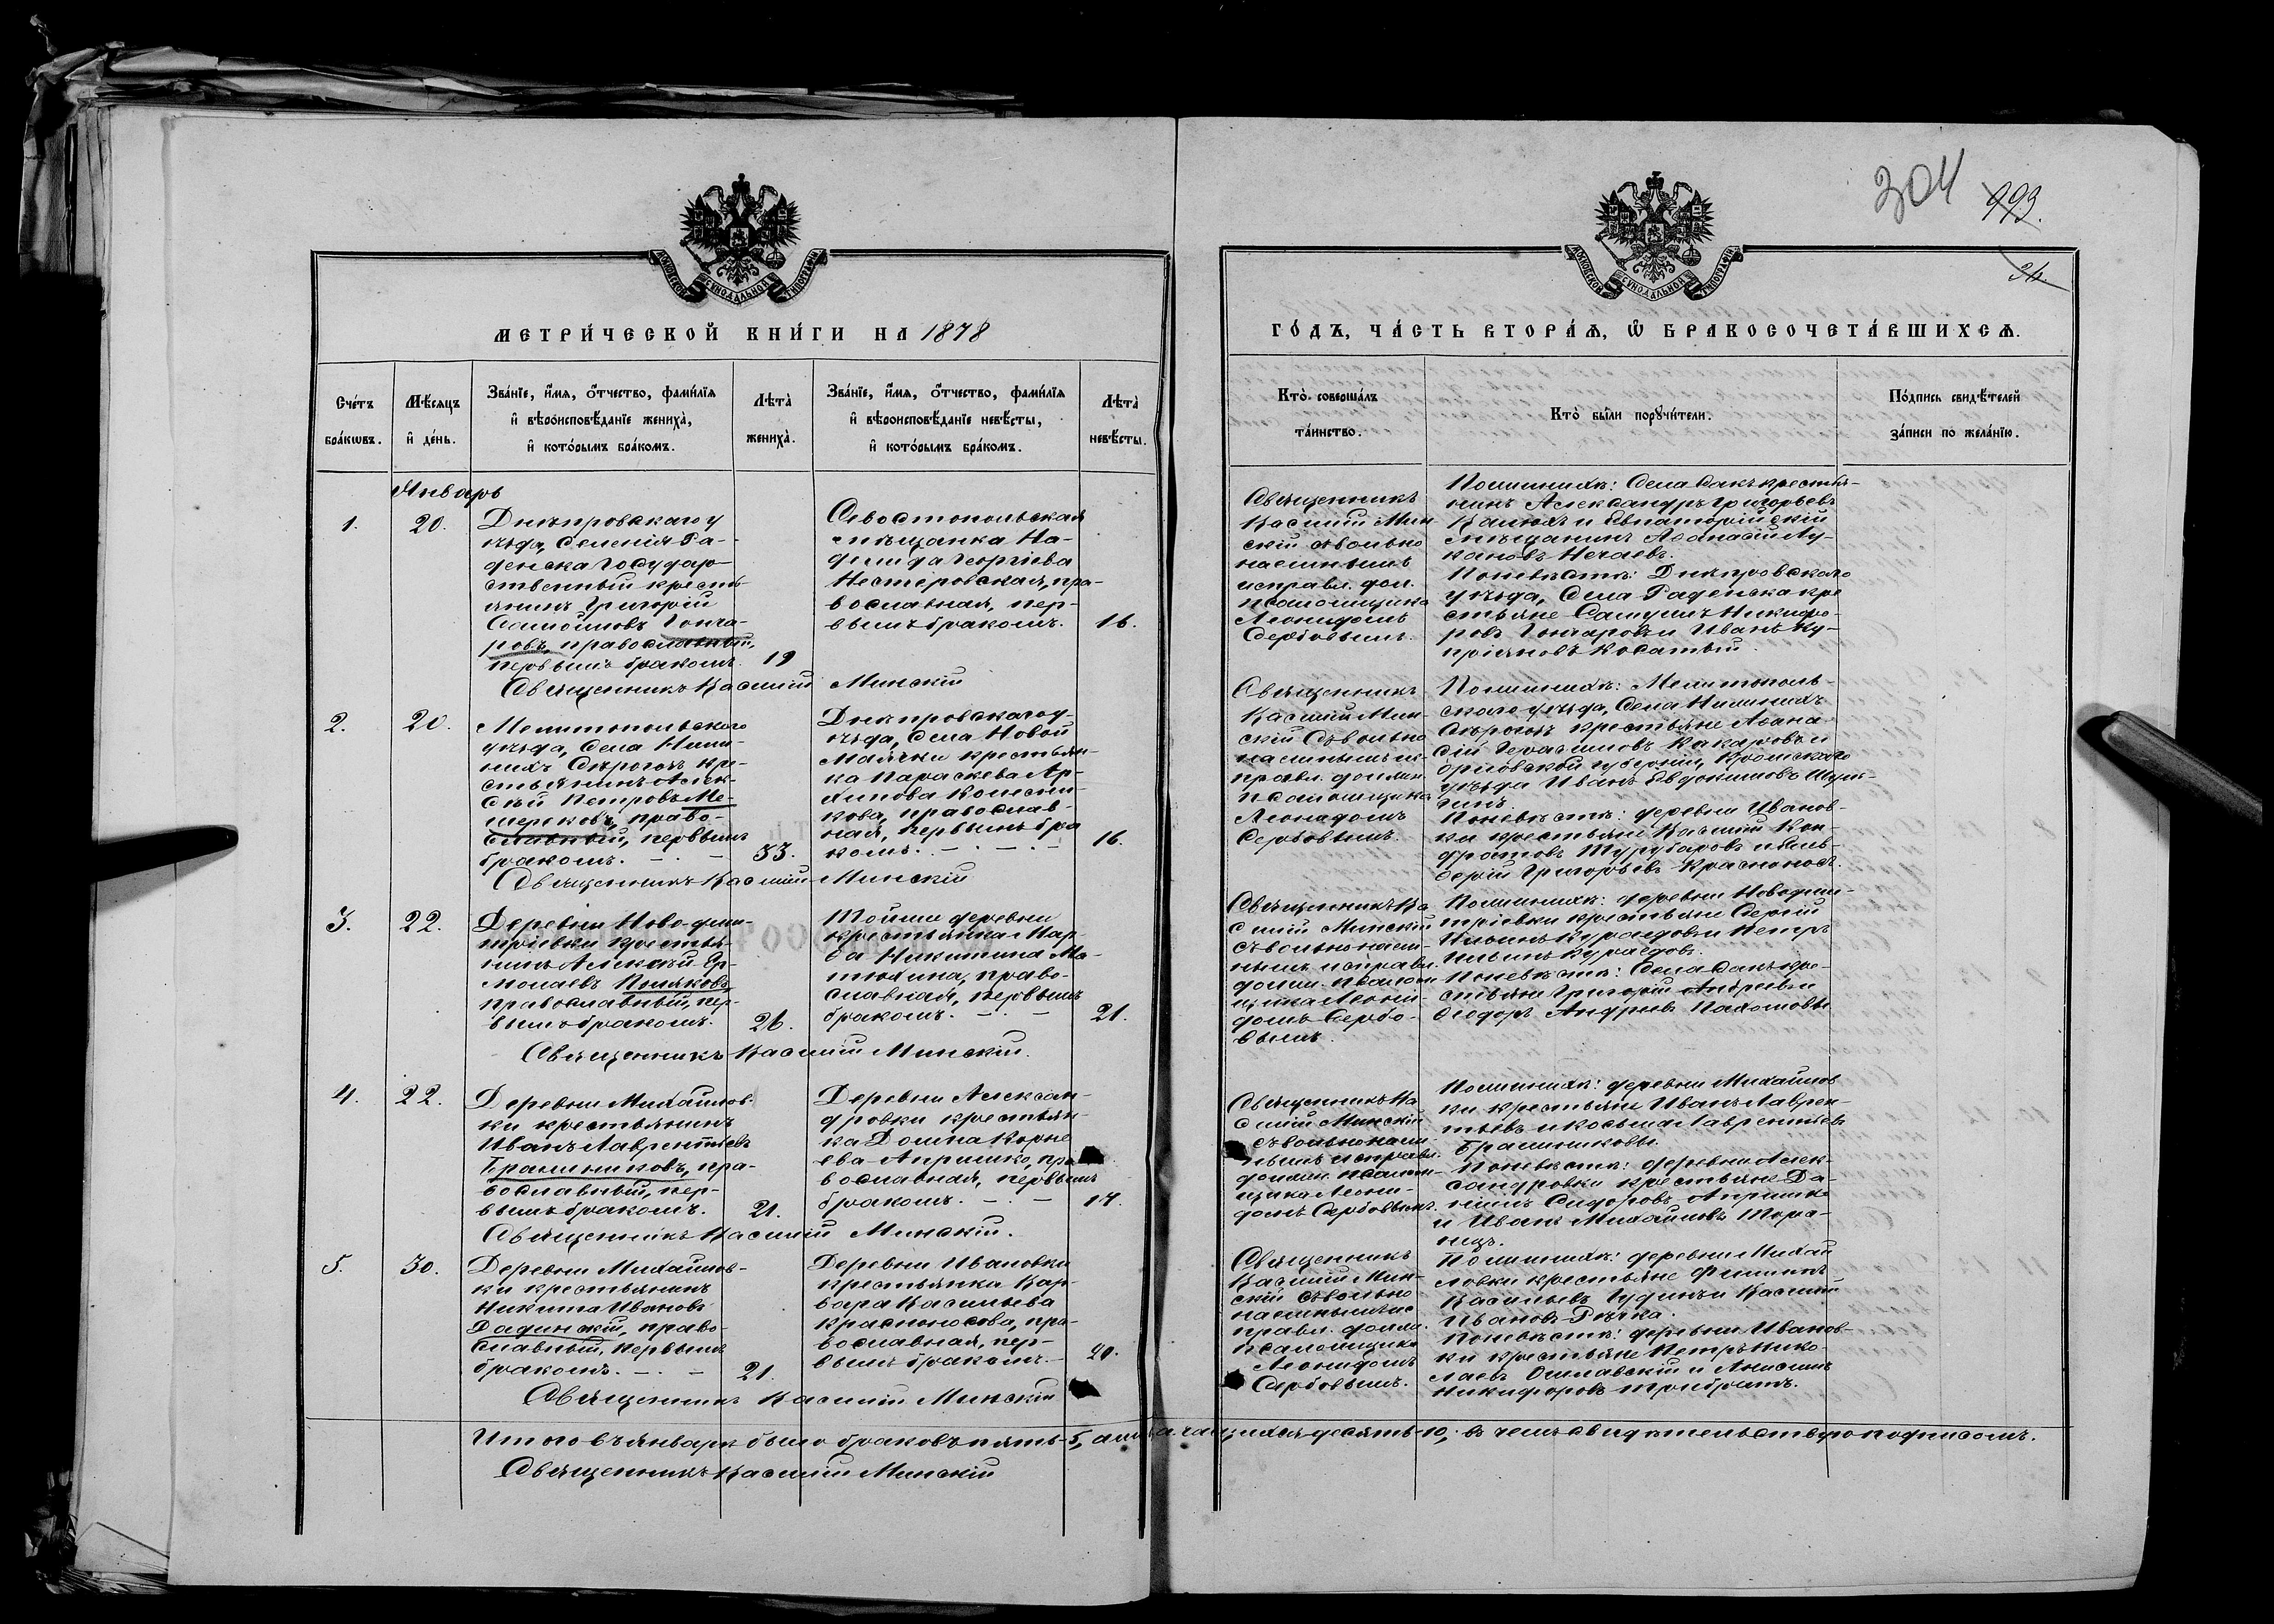 304
993.
МОСКОВСКОЙ СѴНОДАЛЬНОЙ ТИПОГРАФІИ
МЕТРИ́ЧЕСКОЙ КНИ́ГИ НА 1878
Сче́тъ бра́кѡвъ.
Мѣ́сяцъ и҆ де́нь.
Зва́нїе, и҆́мя, ѻ҆́тчество, фами́лїя
и҆ вѣроисповѣ́данїе жениха̀,
и҆ кото́рымъ бра́комъ.
Лѣта̀ жениха̀.
Зва́нїе, и҆́мя, ѻ҆́тчество, фами́лїя
и҆ вѣроисповѣ́данїе невѣ́сты,
и҆ кото́рымъ бра́комъ.
Лѣта̀ невѣ́сты.
Январь
1.
20.
Днѣпровскаго у
ѣзда, Селенія Ра-
денска Государ-
ственный кресть
янинъ Григорій
Самойловъ Гонча-
ровъ, православный,
первымъ бракомъ.
19
Севостопольская
мѣщанка На-
дежда Георгіева
Нестеровская, пра-
вославная, пер-
вымъ бракомъ.
16.
Священникъ Василій Минскій
2.
20.
Мелитопольского
уѣзда, Села Ниж-
нихъ Сѣрогозъ кре-
стьянинъ Алек-
сѣй Петровъ Ме-
щерковъ, право-
славный, первымъ
бракомъ.
33.
Днѣпровскаго у-
ѣзда, Села Новой
Маячки крестьян-
ка Параскева Ар-
хипова Колесни-
кова, православ-
ная, первымъ бра
комъ.
16.
Священникъ Василій Минскій
3.
22.
Деревни Ново-дми-
тріевки крестья-
нинъ Алексѣй Ер-
молаевъ Поляковъ,
православный, пер-
вымъ бракомъ.
26.
Тойже деревни
крестьянка Мар-
ѳа Никитина Ма-
тюхина, право-
славная, первымъ
бракомъ.
21.
Священникъ Василій Минскій.
4.
22.
Деревни Михайлов-
ки крестьянинъ
Иванъ Лаврентьевъ
Бражниковъ, пра-
вославный, пер-
вымъ бракомъ.
21.
Деревни Алексан-
дровки крестьян-
ка Домна Корне
ева Апришко, пра
вославная, первымъ
бракомъ.
17.
Священникъ Василій Минскій.
5.
30.
Деревни Михайлов-
ки крестьянинъ
Никита Ивановъ
Радинскій, право-
славный, первымъ
бракомъ.
21.
Деревни Ивановки
крестьянка Вар-
вара Васильева
Красноносова, пра-
вославная, пер-
вымъ бракомъ.
20.
Священникъ Василій Минскій
Итого въ январѣ было браковъ пять-5, а сочетающихся десять-10, въ чемъ свидѣтельствую подписомъ.
Священникъ Василій Минскій
МОСКОВСКОЙ СѴНОДАЛЬНОЙ ТИПОГРАФІИ
ГО́ДЪ, ЧА́СТЬ ВТОРА́Я, Ѡ҆ БРАКОСОЧЕТА́ВШИХСЯ.
Кто̀ соверша́лъ
та́инство.
Кто̀ бы́ли порꙋчи́тели.
По́дпись свидѣ́телей
за́писи по жела́нїю.
Священникъ
Василій Мин
скій съ вольно
наемнымъ
исправл. дол.
псаломщика
Леонидомъ
Сербовымъ.
По женихѣ: Села Сакъ крестья-
нинъ Александръ Григорьевъ
и Евпаторійскій
мѣщанинъ Аѳанасій Лу-
кановъ Нечаевъ.
По невѣстѣ: Днѣпровскаго
уѣзда, Села Раденска кре
стьяне Самуилъ Никифо-
ровъ Гончаровъ и Иванъ Ку-
пріяновъ Косатый.
Священникъ
Василій Мин-
скій съ вольно
наемнымъ ис-
правл. должн.
псаломщика
Леонидомъ
Сербовымъ.
По женихѣ: Мелитополь-
скаго уѣзда, Села Нижнихъ
Сѣрогозъ крестьяне Аѳана
сій Герасимовъ Какаровъ и
Орловской губерніи, Кромскаго
уѣзда Иванъ Евдокимовъ
По невѣстѣ: деревни Иванов-
ки крестьяне Василій Кон-
дратовъ Турубаровъ и
Григорьевъ Красноносъ.
Священникъ Ва
силій Минскій
съ вольнонаем-
нымъ исправл.
должн. псалом
щика Леони-
домъ Сербо-
вымъ.
По женихѣ: деревни Новодми-
тріевки крестьяне Сергій
Ильинъ Кураѣдовъ и Петръ
Ильинъ Кураѣдовъ.
По невѣстѣ: Села Сакъ кре-
стьяне Григорій Андреевъ и
Ѳеодоръ Андреевъ Пахомовы
Священникъ Ва
силій Минскій
съ вольнонаем-
нымъ исправл.
должн. псалом-
щика Леони-
домъ Сербовымъ.
По женихѣ: деревни Михайлов
ки крестьяне Иванъ Лаврен-
тьевъ и Косьма Лаврентьевъ
Бражниковы.
По невѣстѣ: деревни Алек-
сандровки крестьяне Да-
ніилъ Сидоровъ Апришко
и Иванъ Михайловъ
Священникъ
Василій Мин-
скій съ вольно
наемнымъ ис
правл. должн.
псаломщика
Леонидомъ
Сербовымъ.
По женихѣ: деревни Михай
ловки крестьяне Филиппъ
Васильевъ Гудинъ и Василій
Ивановъ Рѣчка.
По невѣстѣ: деревни Иванов-
ки крестьяне Петръ Нико-
лаевъ и Анисимъ
Никифоровъ